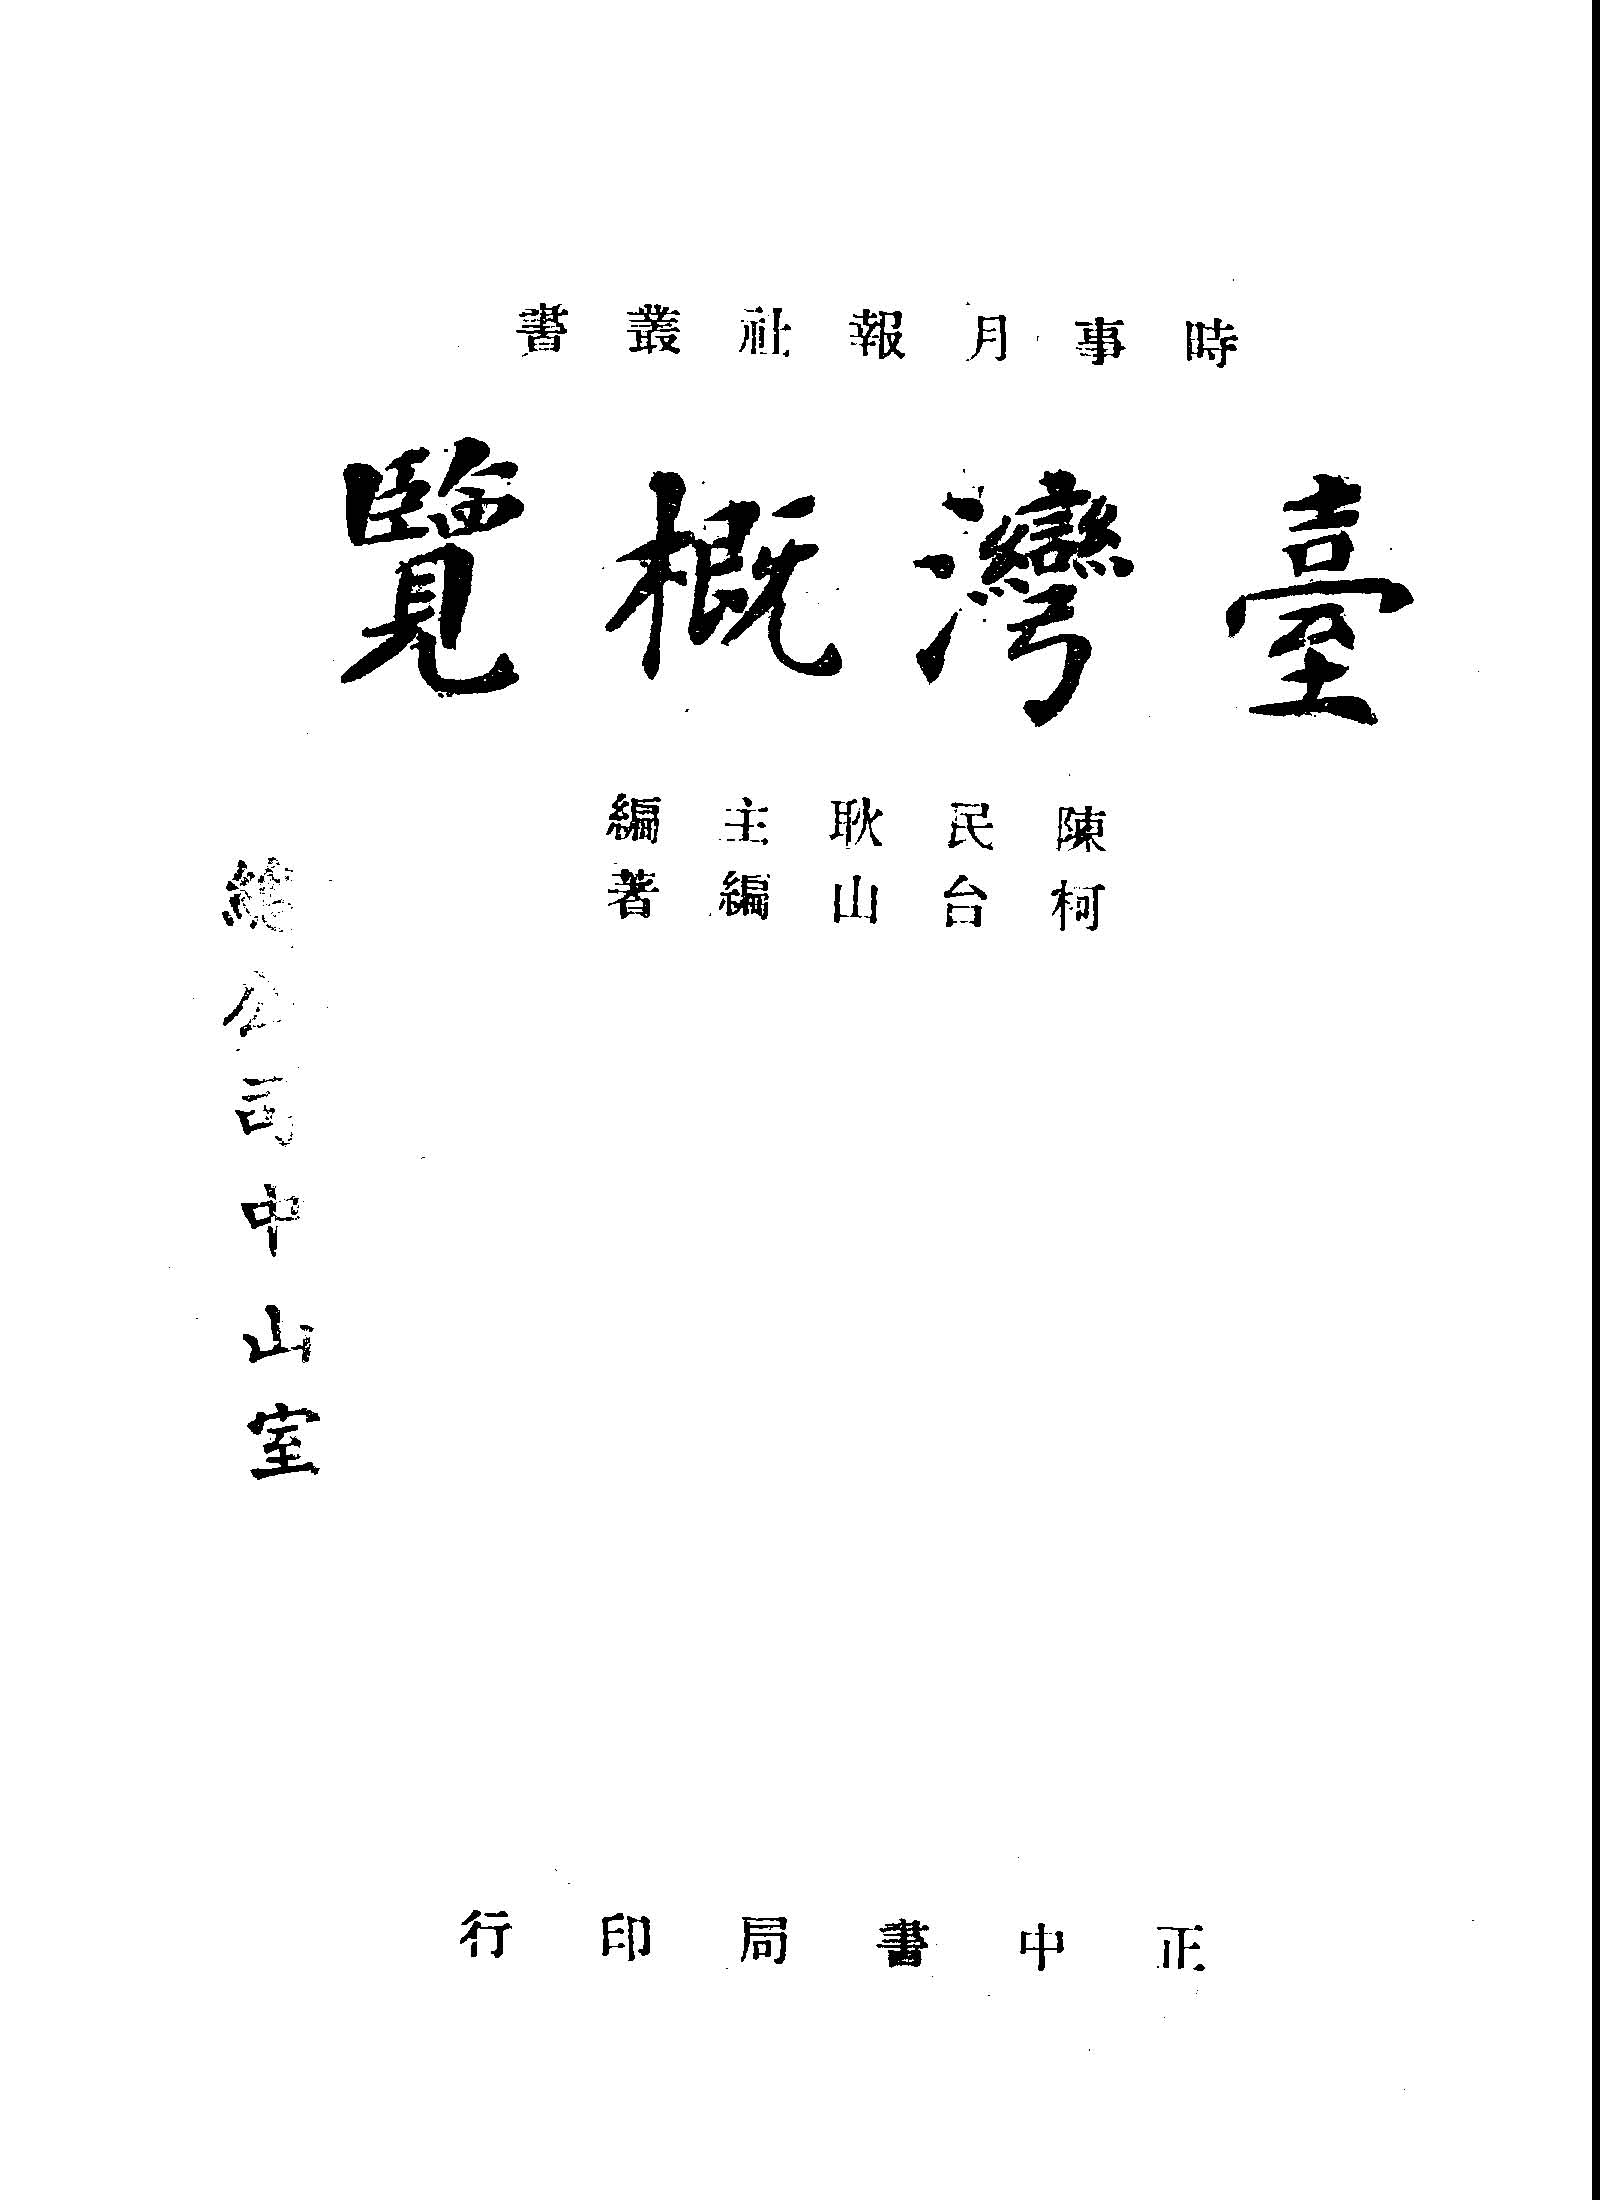 時事月報社叢書
臺灣概覽
陳民耿主編
柯台山編著
總公司中山室
正中書局印行